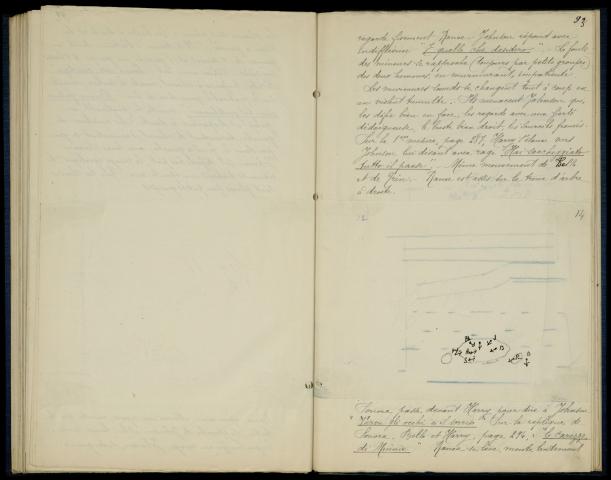 93
regarde fixement Rance. Johnson répond avec
indifférence "È quello che desidero". La foule
des mineurs se rapproche (toujours par petits groupes)
des deux hommes, en murmurant, impatiente.
Les murmures sourds se changent tout à coup en
un violent tumulte. Ils menacent Johnson qui,
les défie bien en face, les regarde avec une fierté
dédaigneuse, le buste bien droit, les sourcils froncés.
Sur la 1ère mesure, page 287, Harry s'élance vers
Johnson lui disant avec rage
tutto il paese". Même mouvement de Bello
et de Trin. Rance est assis sur le tronc d'arbre
à droite.
14
Sonora passe devant Harry pour dire à Johnson
Sur la réplique de
Sonora, Bello et Harry, page 294, "le carezze
di Minnie" Rance se lève, monte lentement